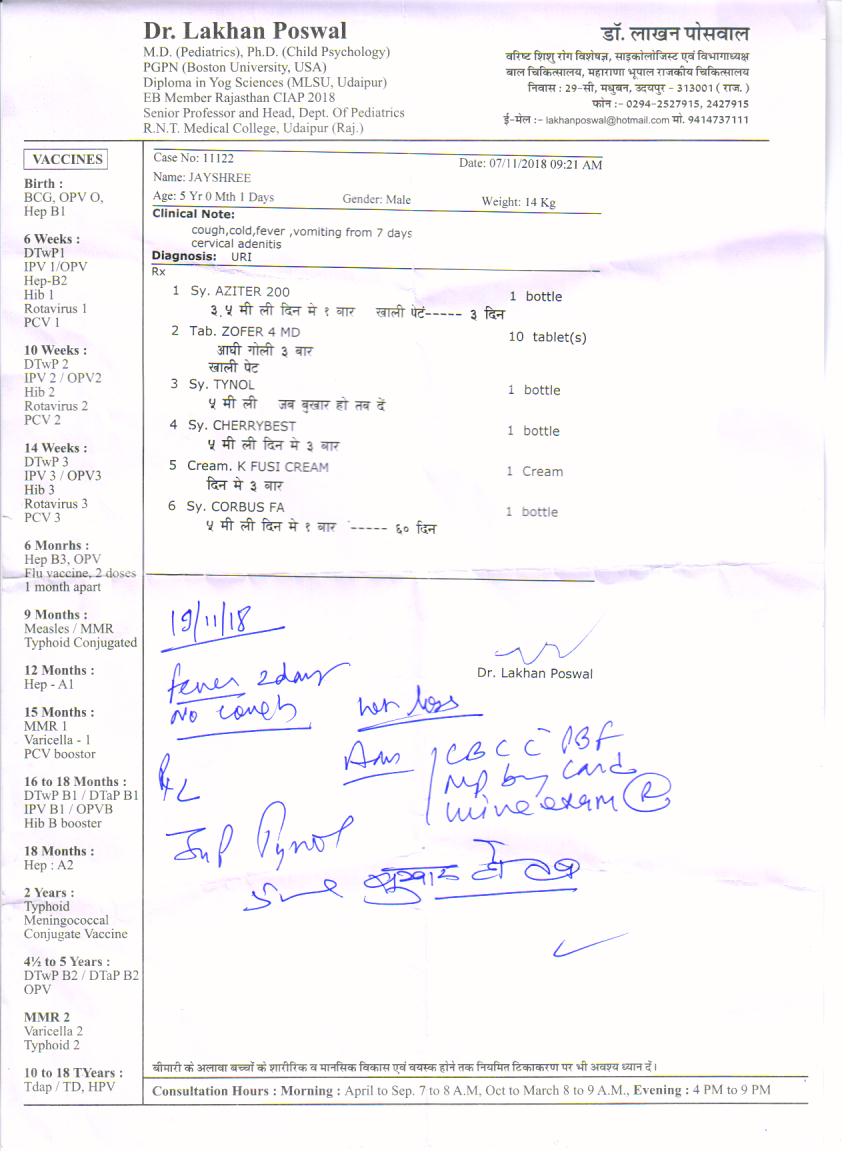 Dr. Lakhan Poswal
M.D. (Pediatrics), Ph.D. (Child Psychology)
PGPN (Boston University, USA)
Diploma in Yog Sciences (MLSU, Udaipur)
EB Member Rajasthan CIAP 2018
Senior Professor and Head, Dept. Of Pediatrics
R.N.T. Medical College, Udaipur (Raj.)
डॉ. लाखन पोसवाल
वरिष्ट शिशु रोग विशेषज्ञ, साइकोलोजिस्ट एवं विभागाध्यक्ष
बाल चिकित्सालय, महाराणा भूपाल राजकीय चिकित्सालय
निवास : 29-सी, मधुबन, उदयपुर - 313001 ( राज. )
फोन :- 0294-2527915, 2427915
ई-मेल :- lakhanposwal@hotmail.com मो. 9414737111
VACCINES
Birth :
BCG, OPV O,
Hep B1
6 Weeks :
DTwP1
IPV 1/OPV
Hep-B2
Hib 1
Rotavirus 1
PCV 1
10 Weeks :
DTwP 2
IPV 2 / OPV2
Hib 2
Rotavirus 2
PCV 2
14 Weeks :
DTwP 3
IPV 3 / OPV3
Hib 3
Rotavirus 3
PCV 3
6 Monrhs :
Hep B3, OPV
Flu vaccine, 2 doses
1 month apart
9 Months :
Measles / MMR
Typhoid Conjugated
12 Months :
Hep - A1
15 Months :
MMR 1
Varicella - 1
PCV boostor
16 to 18 Months :
DTwP B1 / DTaP B1
IPV B1 / OPVB
Hib B booster
18 Months :
Hep : A2
2 Years :
Typhoid
Meningococcal
Conjugate Vaccine
4½ to 5 Years :
DTwP B2 / DTaP B2
OPV
MMR 2
Varicella 2
Typhoid 2
10 to 18 TYears :
Tdap / TD, HPV
Case No: 11122 Date: 07/11/2018 09:21 AM
Name: JAYSHREE
Age: 5 Yr 0 Mth 1 Days Gender: Male Weight: 14 Kg
Clinical Note:
cough,cold,fever ,vomiting from 7 days
cervical adenitis
Diagnosis: URI
Rx
1 Sy. AZITER 200 1 bottle
३.५ मी ली दिन मे १ बार खाली पेट----- ३ दिन
2 Tab. ZOFER 4 MD 10 tablet(s)
आधी गोली ३ बार
खाली पेट
3 Sy. TYNOL 1 bottle
५ मी ली जब बुखार हो तब दें
4 Sy. CHERRYBEST 1 bottle
५ मी ली दिन मे ३ बार
5 Cream. K FUSI CREAM 1 Cream
दिन मे ३ बार
6 Sy. CORBUS FA 1 bottle
५ मी ली दिन मे १ बार ----- ६० दिन
19/11/18
Dr. Lakhan Poswal
fever 2 days
No cough
Adv CBC C PBF
MP by card
urine exam (R)
Rx
Syp Tynol
5ml बुखार हो तब
बीमारी के अलावा बच्चों के शारीरिक व मानसिक विकास एवं वयस्क होने तक नियमित टिकाकरण पर भी अवश्य ध्यान दें।
Consultation Hours : Morning : April to Sep. 7 to 8 A.M, Oct to March 8 to 9 A.M., Evening : 4 PM to 9 PM